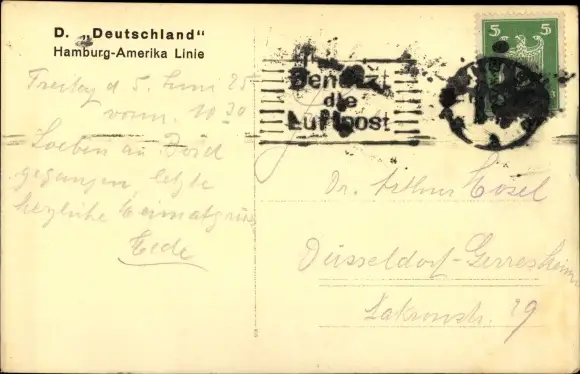 D. „Deutschland"
Hamburg-Amerika Linie
Freitag d 5. Juni 25
vorm. 10 30
Soeben an Bord
gegangen, letzte
herzliche Heimatgrüße
Ede
5 5
Benutzt
die
Luftpost
Dr. Arthur Hosel
Düsseldorf-Gerresheim
29